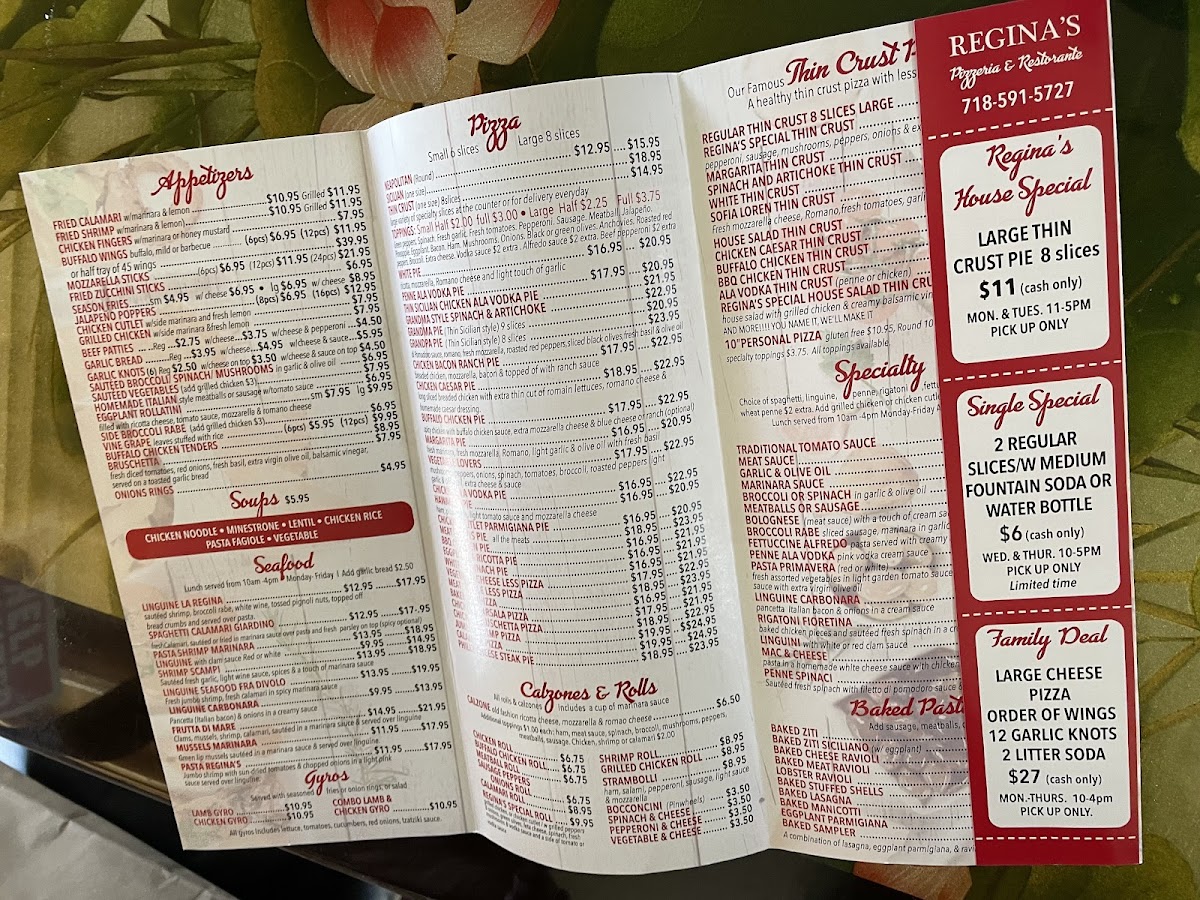 Appetizers
FRIED CALAMARI w/marinara & lemon $10.95 Grilled $11.95
FRIED SHRIMP w/marinara & lemon) $10.95 Grilled $11.95
CHICKEN FINGERS w/marinara or honey mustard $7.95
BUFFALO WINGS buffalo, mild or barbecue (6pcs) $6.95 (12pcs) $11.95
or half tray of 45 wings $39.95
MOZZARELLA STICKS (6pcs) $6.95 (12pcs) $11.95 (24pcs) $21.95
FRIED ZUCCHINI STICKS $6.95
SEASON FRIES sm $4.95 w/cheese $6.95 • lg $6.95 w/ cheese $8.95
JALAPEÑO POPPERS (8pcs) $6.95 (16pcs) $12.95
CHICKEN CUTLET w/side marinara and fresh lemon $7.95
GRILLED CHICKEN w/side marinara &fresh lemon $7.95
BEEF PATTIES Reg $2.75 w/cheese $3.75 w/cheese & pepperoni $4.50
GARLIC BREAD Reg $3.95 w/cheese $4.95 w/cheese & sauce $5.95
GARLIC KNOTS (6) Reg $2.50 w/cheese on top $3.50 w/cheese & sauce on top $4.50
SAUTÉED BROCCOLI SPINACH/ MUSHROOMS in garlic & olive oil $6.95
SAUTÉED VEGETABLES (add grilled chicken $3) $7.95
HOMEMADE ITALIAN style meatballs or sausage w/tomato sauce $6.95
EGGPLANT ROLLATINI sm $7.95 lg $9.95
filled with ricotta cheese, tomato sauce, mozzarella & romano cheese
SIDE BROCCOLI RABE (add grilled chicken $3) $6.95
VINE GRAPE leaves stuffed with rice $9.95
BUFFALO CHICKEN TENDERS (6pcs) $5.95 (12pcs) $8.95
BRUSCHETTA $7.95
fresh diced tomatoes, red onions, fresh basil, extra virgin olive oil, balsamic vinegar,
served on a toasted garlic bread
ONIONS RINGS $4.95
Soups $5.95
CHICKEN NOODLE • MINESTRONE • LENTIL • CHICKEN RICE
PASTA FAGIOLE • VEGETABLE
Seafood
Lunch served from 10am -4pm Monday- Friday | Add garlic bread $2.50
LINGUINE LA REGINA $12.95 $17.95
sautéed shrimp, broccoli rabe, white wine, tossed pignoli nuts, topped off
bread crumbs and served over pasta
SPAGHETTI CALAMARI GIARDINO $12.95 $17.95
fresh calamari, sautéed or fried in marinara sauce over pasta and fresh parsley on top (spicy optional)
PASTA SHRIMP MARINARA $13.95 $18.95
LINGUINE with clam sauce Red or white $9.95 $14.95
SHRIMP SCAMPI $13.95 $18.95
Sautéed fresh garlic, light wine sauce, spices & a touch of marinara sauce
LINGUINE SEAFOOD FRA DIVOLO $13.95 $19.95
Fresh jumbo shrimp, fresh calamari in spicy marinara sauce
LINGUINE CARBONARA $9.95 $13.95
Pancetta (Italian bacon) & onions in a creamy sauce
FRUTTA DI MARE $14.95 $21.95
Clams, mussels, shrimp, calamari, sautéed in a marinara sauce & served over linguine
MUSSELS MARINARA $11.95 $17.95
Green lip mussels sautéed in a marinara sauce & served over linguine
PASTA REGINA'S $11.95 $17.95
Jumbo shrimp with sun dried tomatoes & chopped onions in a light pink
sauce served over linguine
Gyros
Served with seasoned fries or onion rings, or salad
LAMB GYRO $10.95
CHICKEN GYRO $10.95
COMBO LAMB &
CHICKEN GYRO $10.95
All gyros Includes lettuce, tomatoes, cucumbers, red onions, tzatziki sauce.
Pizza
Small 6 slices Large 8 slices
NEAPOLITAN (Round) $12.95 $15.95
SICILIAN (one size) $18.95
THIN CRUST (one size) 8slices $14.95
large variety of specialty slices at the counter or for delivery everyday
TOPPINGS: Small Half $2.00 full $3.00 • Large Half $2.25 Full $3.75
WHITE PIE $16.95 $20.95
ricotta, mozzarella, Romano cheese and light touch of garlic
PENNE ALA VODKA PIE $17.95 $20.95
THIN SICILIAN CHICKEN ALA VODKA PIE $21.95
GRANDMA STYLE SPINACH & ARTICHOKE $22.95
GRANDMA PIE (Thin Sicilian style) 9 slices $20.95
GRANDPA PIE (Thin Sicilian style) 8 slices $23.95
CHICKEN BACON RANCH PIE $17.95 $22.95
breaded chicken, mozzarella, bacon & topped of with ranch sauce
CHICKEN CAESAR PIE $18.95 $22.95
homemade caesar dressing.
BUFFALO CHICKEN PIE $17.95 $22.95
MARGARITA PIE $16.95 $20.95
$17.95 $22.95
CHICKEN ALA VODKA PIE $16.95 $22.95
$16.95 $20.95
$16.95 $20.95
all the meats $18.95 $23.95
$16.95 $21.95
$16.95 $21.95
$16.95 $21.95
$17.95 $22.95
$18.95 $23.95
$16.95 $21.95
$17.95 $21.95
$18.95 $22.95
$19.95 $24.95
$19.95 $24.95
$18.95 $23.95
Calzones & Rolls
All rolls & calzones includes a cup of marinara sauce
CALZONE old fashion ricotta cheese, mozzarella & romao cheese $6.50
Additional toppings $1.00 each: ham, meat sauce, spinach, broccoli, mushrooms, peppers,
meatballs, sausage. Chicken, shrimp or calamari $2.00
CHICKEN ROLL $6.75
BUFFALO CHICKEN ROLL $6.75
MEATBALL ROLL $6.75
SAUSAGE PEPPERS
ONIONS ROLL $6.75
CALAMARI ROLL $8.95
REGINA'S SPECIAL ROLL $9.95
SHRIMP ROLL $8.95
GRILLED CHICKEN ROLL $8.95
STRAMBOLLI $8.95
ham, salami, pepperoni, sausage, light sauce
& mozzarella
BOCCONCINI (Pinwheels) $3.50
SPINACH & CHEESE $3.50
PEPPERONI & CHEESE $3.50
VEGETABLE & CHEESE $3.50
Our Famous Thin Crust
A healthy thin crust pizza with less
REGULAR THIN CRUST 8 SLICES LARGE
REGINA'S SPECIAL THIN CRUST
pepperoni, sausage, mushrooms, peppers, onions & ex
MARGARITA THIN CRUST
SPINACH AND ARTICHOKE THIN CRUST
WHITE THIN CRUST
SOFIA LOREN THIN CRUST
Fresh mozzarella cheese, Romano, fresh tomatoes, garl
HOUSE SALAD THIN CRUST
CHICKEN CAESAR THIN CRUST
BUFFALO CHICKEN THIN CRUST
BBQ CHICKEN THIN CRUST
ALA VODKA THIN CRUST (penne or chicken)
REGINA'S SPECIAL HOUSE SALAD THIN CRU
house salad with grilled chicken & creamy balsamic vin
AND MORE!!!! YOU NAME IT, WE'LL MAKE IT
10" PERSONAL PIZZA gluten free $10.95, Round 10
specialty toppings $3.75. All toppings available.
Specialty
Choice of spaghetti, linguine, penne, rigatoni, fettu
wheat penne $2 extra. Add grilled chicken or chicken cutl
Lunch served from 10am -4pm Monday-Friday A
TRADITIONAL TOMATO SAUCE
MEAT SAUCE
GARLIC & OLIVE OIL
MARINARA SAUCE
BROCCOLI OR SPINACH in garlic & olive oil
MEATBALLS OR SAUSAGE
BOLOGNESE (meat sauce) with a touch of cream sa
BROCCOLI RABE sliced sausage, marinara in garlic
FETTUCCINE ALFREDO pasta served with creamy
PENNE ALA VODKA pink vodka cream sauce
PASTA PRIMAVERA (red or white)
fresh assorted vegetables in light garden tomato sauce
sauce with extra virgin olive oil
LINGUINE CARBONARA
pancetta Italian bacon & onions in a cream sauce
RIGATONI FIORETINA
baked chicken pieces and sautéed fresh spinach in a cr
LINGUINI with white or red clam sauce
MAC & CHEESE
pasta in a homemade white cheese sauce with chicken
PENNE SPINACI
Sautéed fresh spinach with filetto di pomodoro sauce &
Baked Past
Add sausage, meatballs, c
BAKED ZITI
BAKED ZITI SICILIANO (w/ eggplant)
BAKED CHEESE RAVIOLI
BAKED MEAT RAVIOLI
LOBSTER RAVIOLI
BAKED STUFFED SHELLS
BAKED LASAGNA
BAKED MANICOTTI
EGGPLANT PARMIGIANA
BAKED SAMPLER
A combination of lasagna, eggplant parmigiana, & ravi
REGINA'S
Pizzeria & Restorante
718-591-5727
Regina's
House Special
LARGE THIN
CRUST PIE 8 slices
$11 (cash only)
MON. & TUES. 11-5PM
PICK UP ONLY
Single Special
2 REGULAR
SLICES/W MEDIUM
FOUNTAIN SODA OR
WATER BOTTLE
$6 (cash only)
WED. & THUR. 10-5PM
PICK UP ONLY
Limited time
Family Deal
LARGE CHEESE
PIZZA
ORDER OF WINGS
12 GARLIC KNOTS
2 LITTER SODA
$27 (cash only)
MON.-THURS. 10-4pm
PICK UP ONLY.